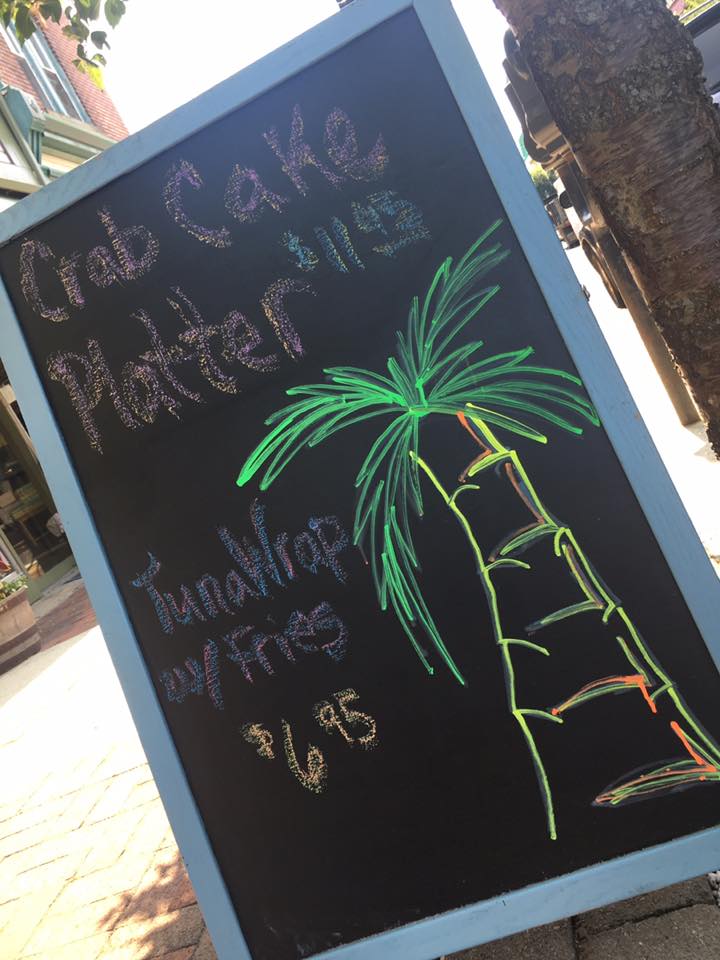 Crab Cake
$11.95
Platter
Tuna Wrap
w/ Fries
$6.95